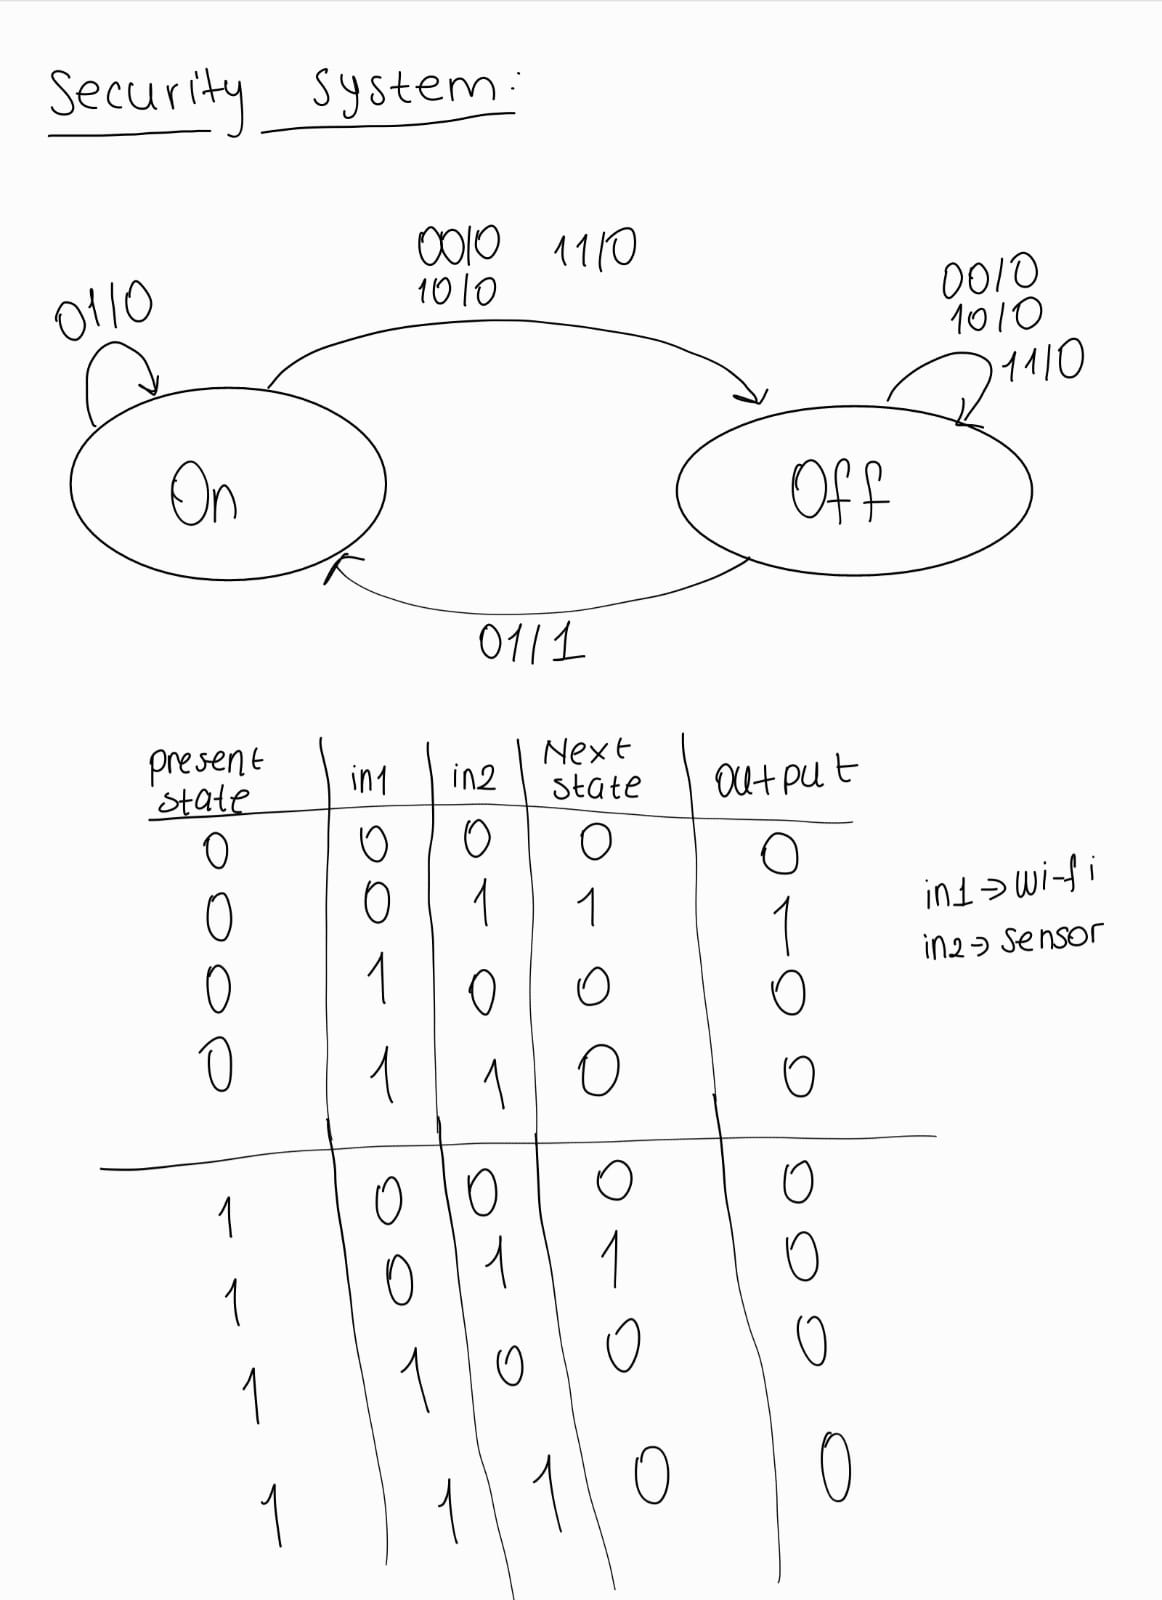 Security system:
00/0 11/0
10/0
01/0
00/0
10/0
11/0
On
Off
01/1
present state in1 in2 Next state output
0 0 0 0 0
0 0 1 1 1
0 1 0 0 0
0 1 1 0 0
1 0 0 0 0
1 0 1 1 0
1 1 0 0 0
1 1 1 0 0
in1⇒wi-fi
in2⇒sensor